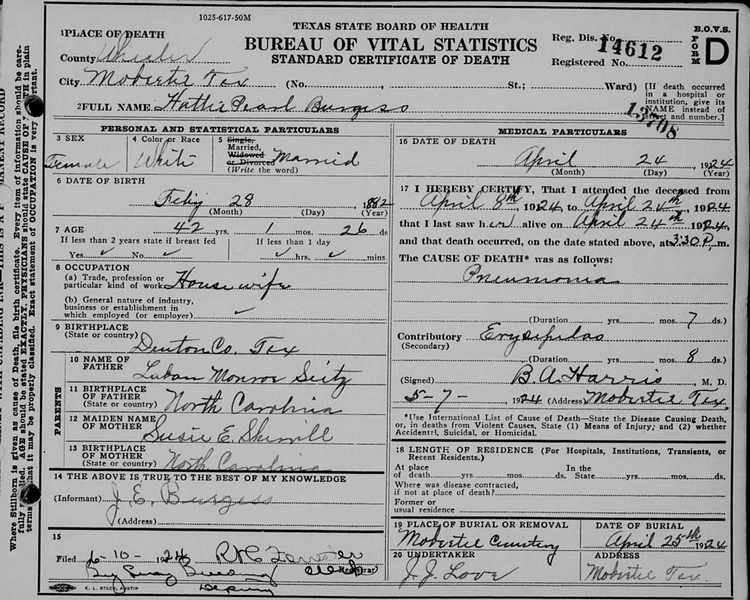 1025-617-50M
TEXAS STATE BOARD OF HEALTH
BUREAU OF VITAL STATISTICS
STANDARD CERTIFICATE OF DEATH
B.O.V.S.
FORM D
Reg. Dis. No. 14612
Registered No.
13708
1 PLACE OF DEATH
County Wheeler
City Mobeetie Tex (No. St.; Ward)
[If death occurred in a hospital or institution, give its NAME instead of street and number.]
2 FULL NAME Hattie Pearl Burgess
PERSONAL AND STATISTICAL PARTICULARS
3 SEX
Female
4 Color or Race
White
5 Single, Married, Widowed or Divorced
(Write the word)
Married
6 DATE OF BIRTH
Feby 28, 1882
(Month) (Day) (Year)
7 AGE
42 yrs. 1 mos. 26 ds
If less than 2 years state if breast fed
Yes No
If less than 1 day
hrs. mins.
8 OCCUPATION
(a) Trade, profession or particular kind of work House wife
(b) General nature of industry, business or establishment in which employed (or employer)
9 BIRTHPLACE
(State or country)
Denton Co. Tex
PARENTS
10 NAME OF FATHER
Laban Monroe Seitz
11 BIRTHPLACE OF FATHER
(State or country)
North Carolina
12 MAIDEN NAME OF MOTHER
Susie E. Sherrill
13 BIRTHPLACE OF MOTHER
(State or country)
North Carolina
14 THE ABOVE IS TRUE TO THE BEST OF MY KNOWLEDGE
(Informant) J. E. Burgess
(Address)
15
Filed 6-10-1924
Registrar
Deputy
MEDICAL PARTICULARS
16 DATE OF DEATH
April 24, 1924
(Month) (Day) (Year)
17 I HEREBY CERTIFY, That I attended the deceased from
April 8th, 1924 to April 24th 1924
that I last saw her alive on April 24th 1924,
and that death occurred, on the date stated above, at 3:30 P. m.
The CAUSE OF DEATH* was as follows:
Pneumonia
(Duration yrs. mos. 7 ds.)
Contributory Erysipelas
(Secondary)
(Duration yrs. mos. 8 ds.)
(Signed) B. A. Harris, M. D.
5-7-1924 (Address) Mobeetie Tex.
*Use International List of Cause of Death—State the Disease Causing Death, or, in deaths from Violent Causes, State (1) Means of Injury; and (2) whether Accidental, Suicidal, or Homicidal.
18 LENGTH OF RESIDENCE (For Hospitals, Institutions, Transients, or Recent Residents.)
At place of death yrs. mos. ds. In the State yrs. mos. ds.
Where was disease contracted, if not at place of death?
Former or usual residence
19 PLACE OF BURIAL OR REMOVAL
Mobeetie Cemetery
DATE OF BURIAL
April 25th, 1924
20 UNDERTAKER
J. J. Love
ADDRESS
Mobeetie Tex.